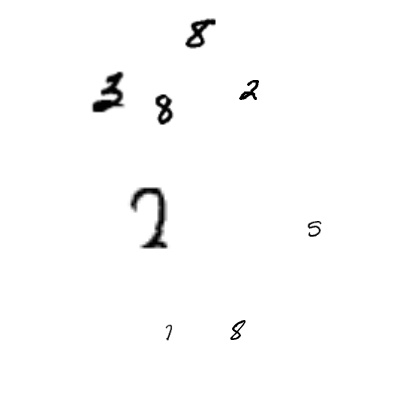 8
3 8 2
2
5
1 8